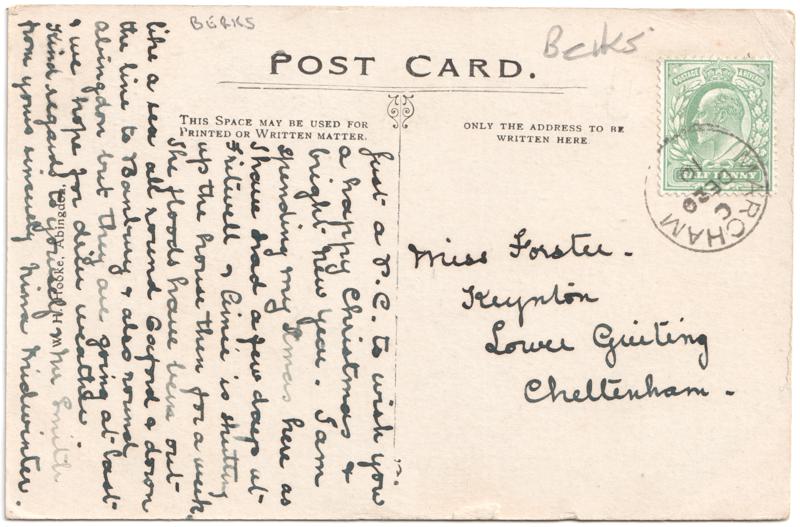 BERKS
Berks
POST CARD.
THIS SPACE MAY BE USED FOR
PRINTED OR WRITTEN MATTER.
ONLY THE ADDRESS TO BE
WRITTEN HERE
POSTAGE & REVENUE
HALF PENNY
MARCHAM
C
DE 20
10
Just a P.C. to wish you
a happy Christmas &
bright New Year. I am
spending my Xmas here as
I have had a few days at
Fritwell & Annie is shutting
up the house then for a week.
The floods have been out
like a sea all round Oxford & down
the line to Banbury & also round
Abingdon but they are going at last
& we hope for drier weather
Kind regards to yourself & Mr Smith
from yours sincerely Nina Midwinter.
W. H. Hooke, Abingdon.
Miss Forster.
Keynton
Lower Guiting
Cheltenham.